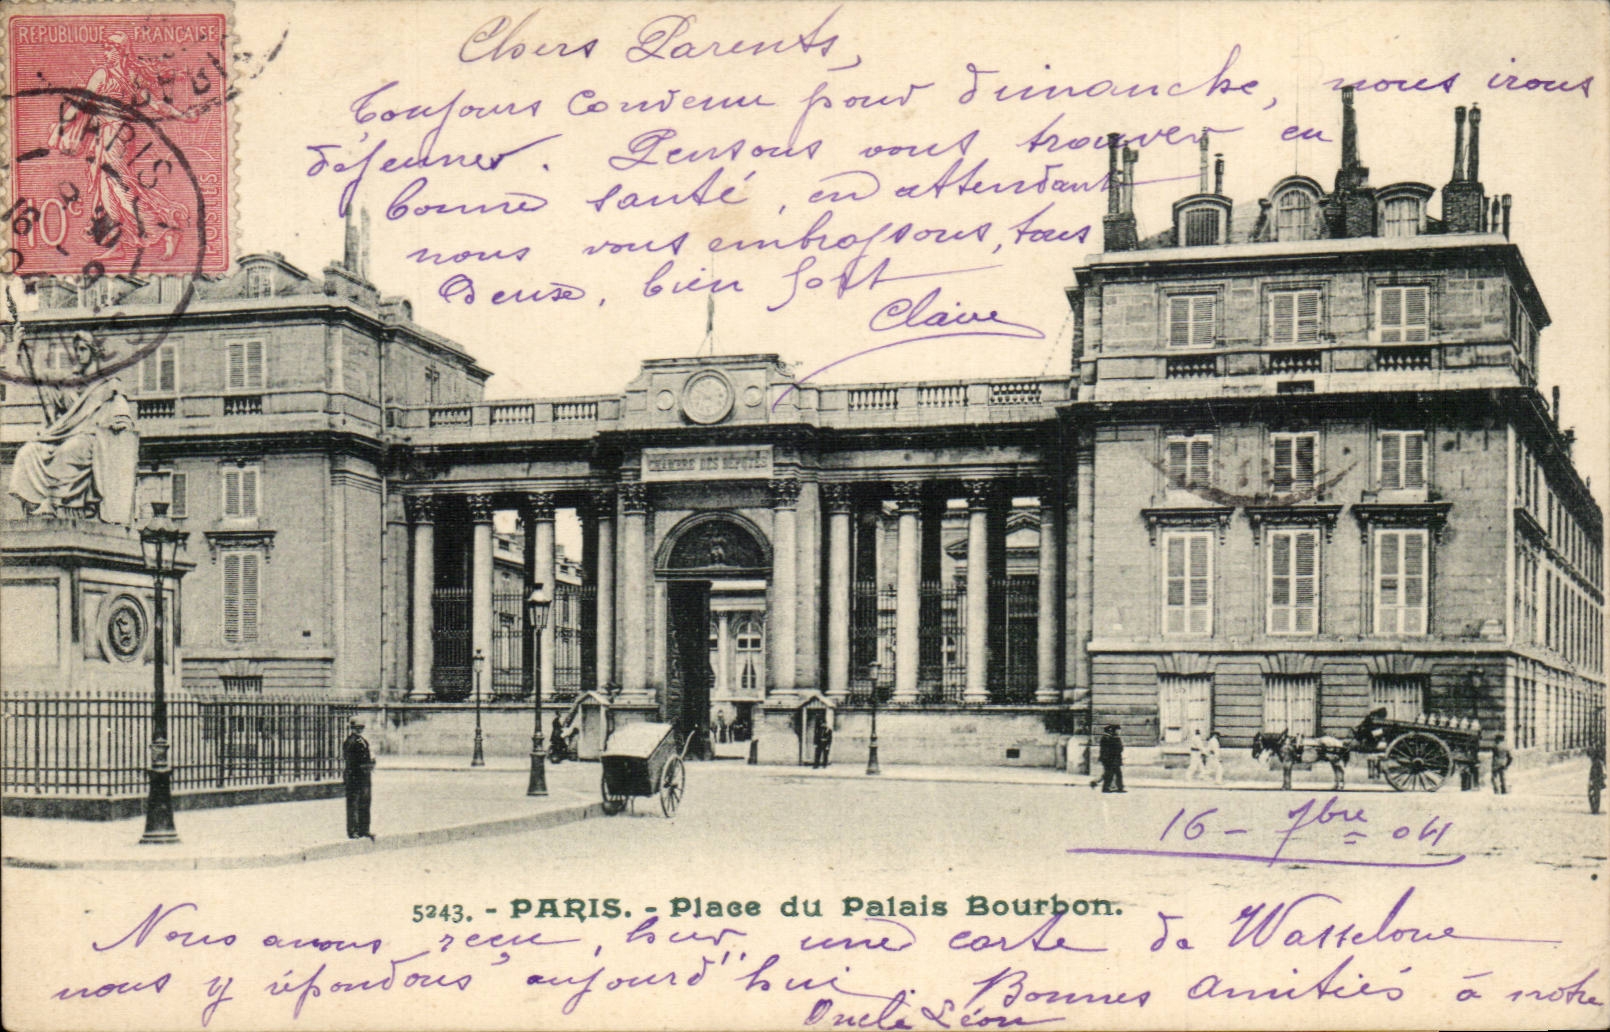 RÉPUBLIQUE FRANÇAISE
10c
POSTES
PARIS
Chers Parents,
Toujours convenu pour dimanche, nous irons
déjeuner. Pensons vous trouver en
bonne santé, en attendant
nous vous embrassons, tous
deux, bien fort
Claire
CHAMBRE DES DÉPUTÉS
16 - 7bre 04
5243. - PARIS. - Place du Palais Bourbon.
Nous avons reçu, hier, une carte de Wasselone
nous y répondons aujourd'hui. Bonnes amitiés à notre
Oncle Léon